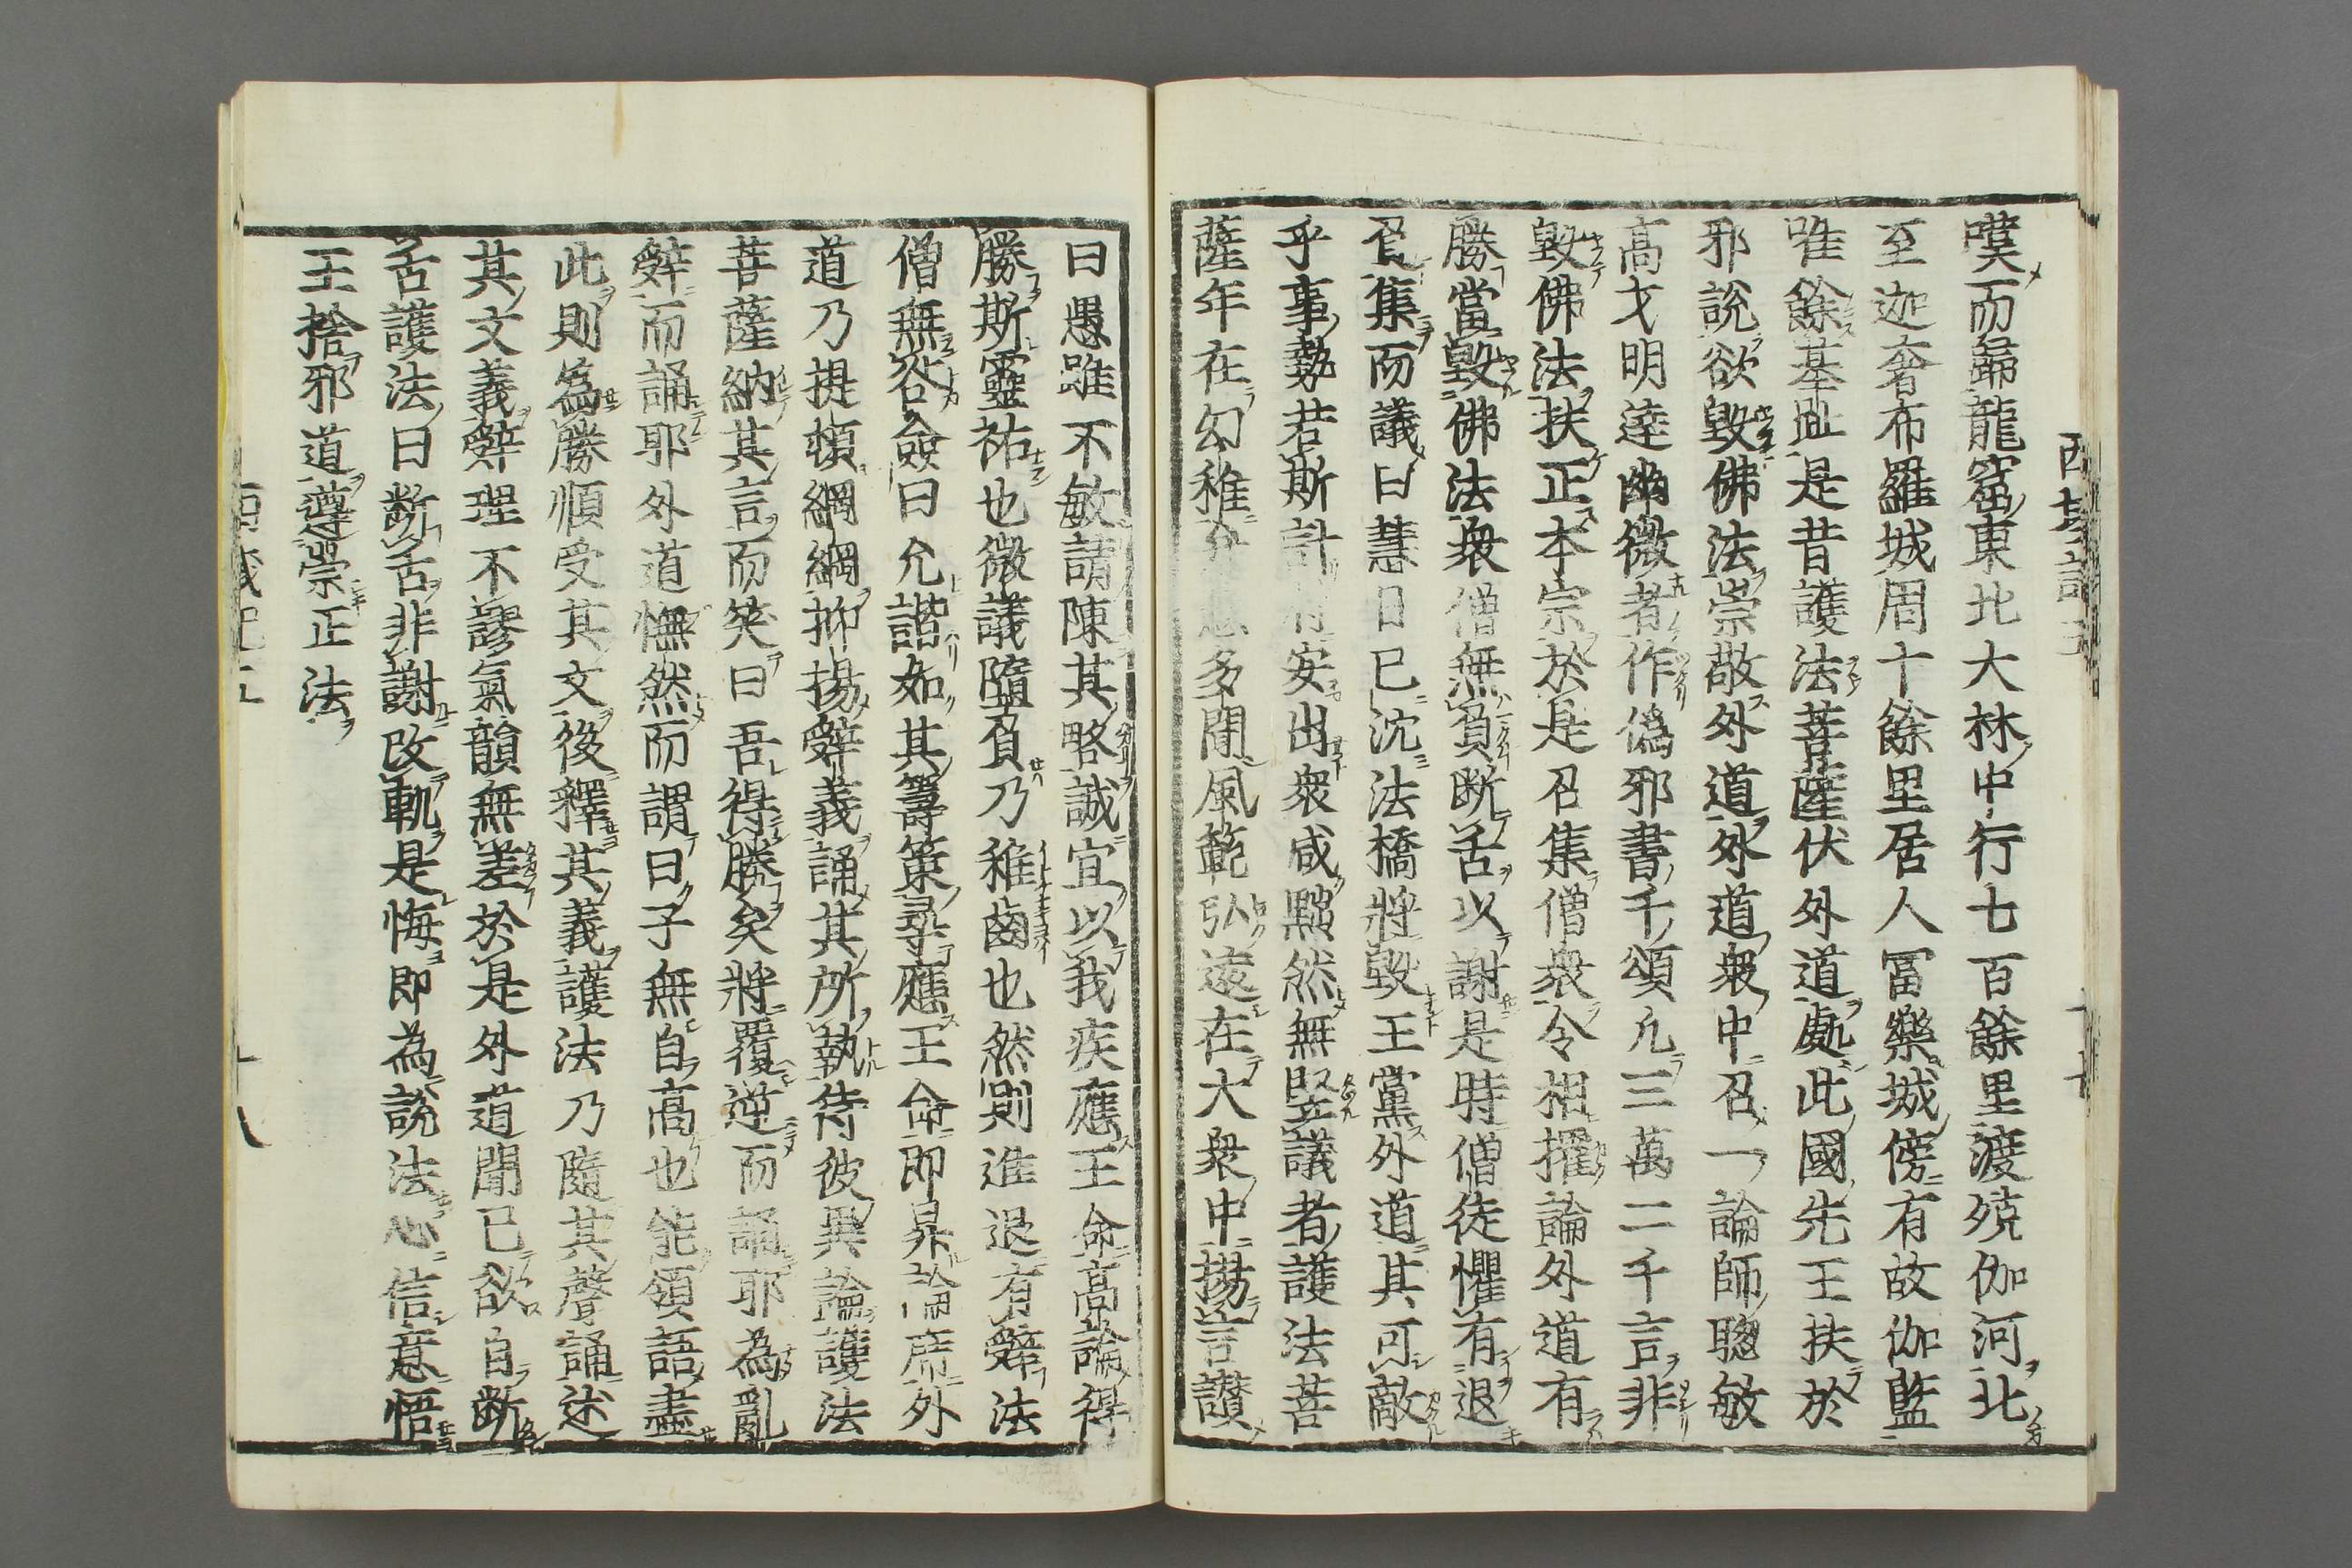 嘆而歸龍窟東北大林中行七百餘里渡殑伽河北
至迦奢布羅城周十餘里居人冨樂城傍有故伽藍
唯餘基趾是昔護法菩薩伏外道處此國先王扶於
邪說欲毀佛法崇敬外道外道衆中召一論師聰敏
高才明達幽微者作偽邪書千頌凢三萬二千言非
毀佛法扶正本宗於是召集僧衆令相擢論外道有
勝當毀佛法衆僧無負断舌以謝是時僧徒懼有退
負集而議曰慧日已沈法橋將毀王黨外道其可敵
乎事勢若斯計將安出衆咸黙然無竪議者護法菩
薩年在幻稚多聞風範弘遠在大衆中揚言讃
曰愚雖不敏請陳其略誠宜以我疾應王命高論得
勝斯靈祐也微議墮負乃稚齒也然則進退有辭法
僧無咎僉曰允諧如其籌策尋應王命即昇論席外
道乃提頓綱網抑揚辭義誦其所執待彼異論護法
菩薩納其言而笑曰吾得勝矣將覆逆而誦耶為亂
辭而誦耶外道憮然而謂曰子無自高也能領語盡
此則為勝順受其文後釋其義護法乃隨其聲誦述
其文義辭理不謬氣韻無差於是外道聞已欲自断
舌護法曰断舌非謝改軌是悔即為說法心信意悟
王捨邪道遵崇正法